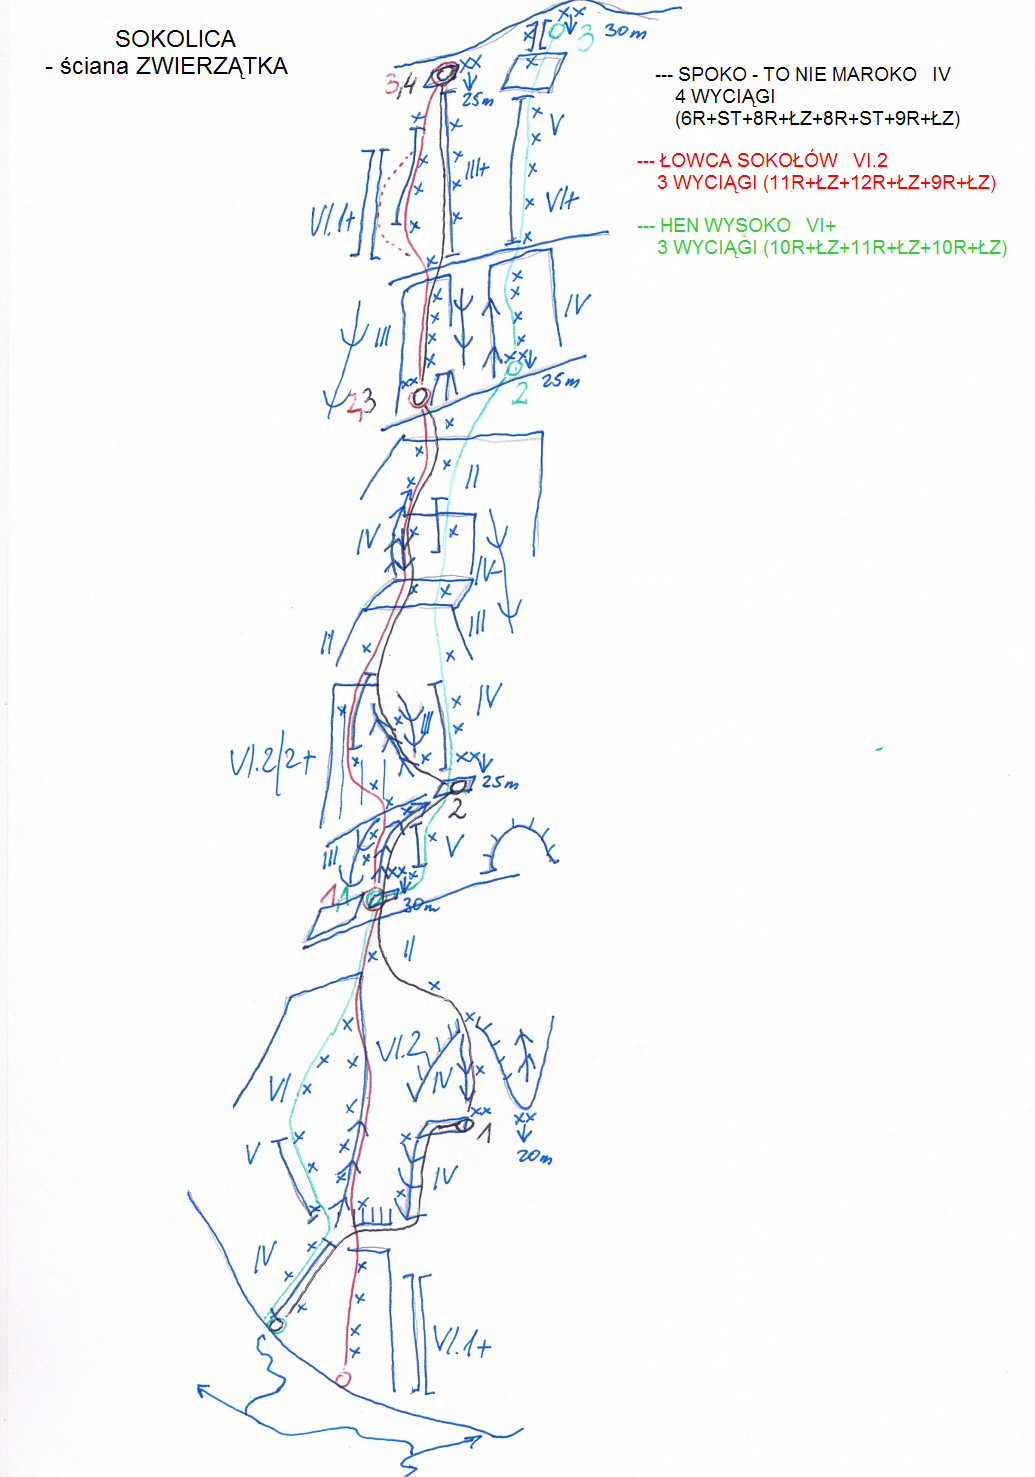 SOKOLICA
- ściana ZWIERZĄTKA
--- SPOKO - TO NIE MAROKO IV
4 WYCIĄGI
(6R+ST+8R+ŁZ+8R+ST+9R+ŁZ)
--- ŁOWCA SOKOŁÓW VI.2
3 WYCIĄGI (11R+ŁZ+12R+ŁZ+9R+ŁZ)
--- HEN WYSOKO VI+
3 WYCIĄGI (10R+ŁZ+11R+ŁZ+10R+ŁZ)
3 30m
3,4
25m
V
III+
VI.1+
VI+
IV
III
25m
2
2,3
II
IV
IV-
III
II
IV
III
VI.2/2+
25m
2
V
III
1,1
30m
II
VI.2
VI
IV
1
20m
V
IV
IV
VI.1+